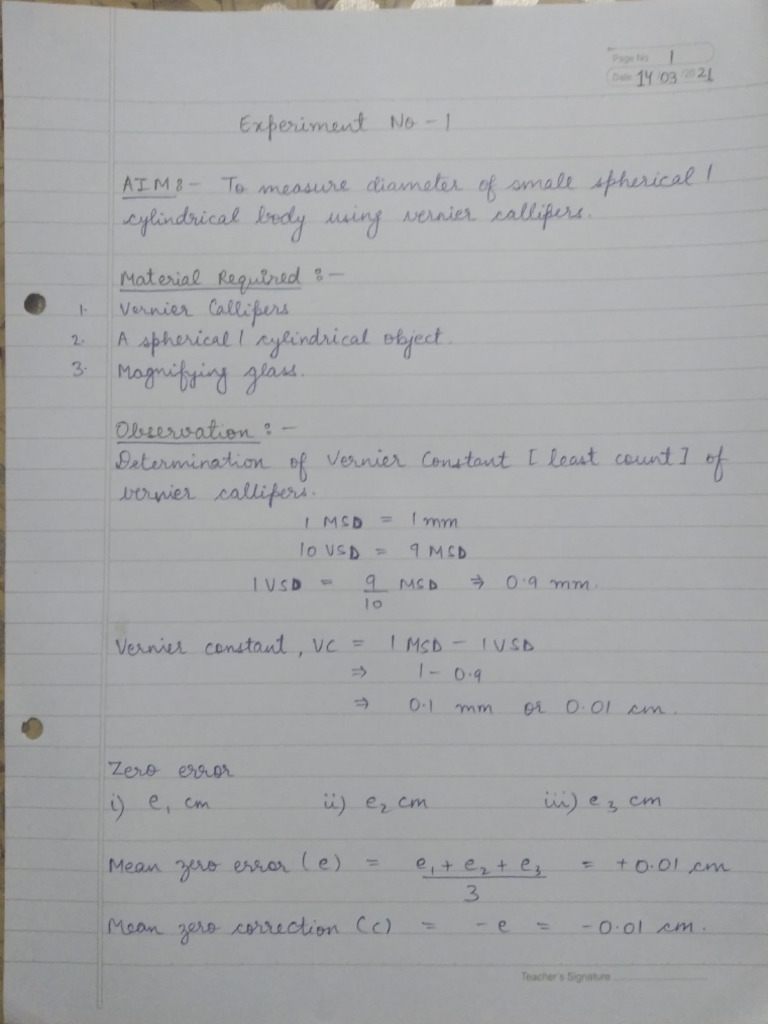 Page No 1
Date 14 03 2021
Experiment No - 1
AIM :- To measure diameter of small spherical /
cylindrical body using vernier callipers.
Material Required :-
1. Vernier Callipers
2. A spherical / cylindrical object.
3. Magnifying glass.
Observation :-
Determination of Vernier Constant [ least count ] of
vernier callipers.
1 MSD = 1 mm
10 VSD = 9 MSD
1 VSD = 9/10 MSD ⇒ 0.9 mm.
Vernier constant, VC = 1 MSD - 1 VSD
⇒ 1 - 0.9
⇒ 0.1 mm or 0.01 cm.
Zero error
i) e₁ cm ii) e₂ cm iii) e₃ cm
Mean zero error (e) = (e₁ + e₂ + e₃)/3 = +0.01 cm
Mean zero correction (c) = -e = -0.01 cm.
Teacher's Signature